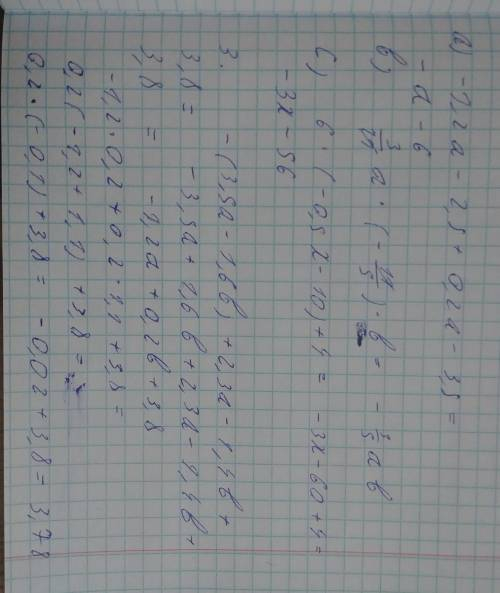 a) -1,2a - 2,5 + 0,2a - 3,5 =
- a - 6
b) 3/11 a · (- 11/5) · b = - 3/5 ab
c) 6 · (-0,5x - 10) + 4 = -3x - 60 + 4 =
-3x - 56
3. -(3,5a - 1,6b) + 2,3a - 1,4b +
3,8 = -3,5a + 1,6b + 2,3a - 1,4b +
3,8 = -1,2a + 0,2b + 3,8
-1,2 · 0,2 + 0,2 · 1,1 + 3,8 =
0,2(-1,2 + 1,1) + 3,8 =
0,2 · (-0,1) + 3,8 = -0,02 + 3,8 = 3,78